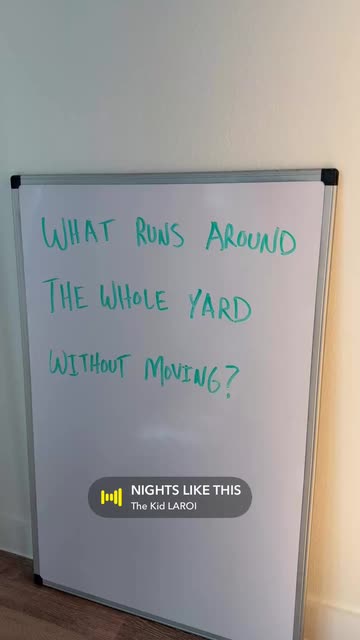 WHAT RUNS AROUND
THE WHOLE YARD
WITHOUT MOVING?
NIGHTS LIKE THIS
The Kid LAROI